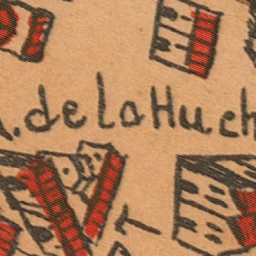 . de la Huch